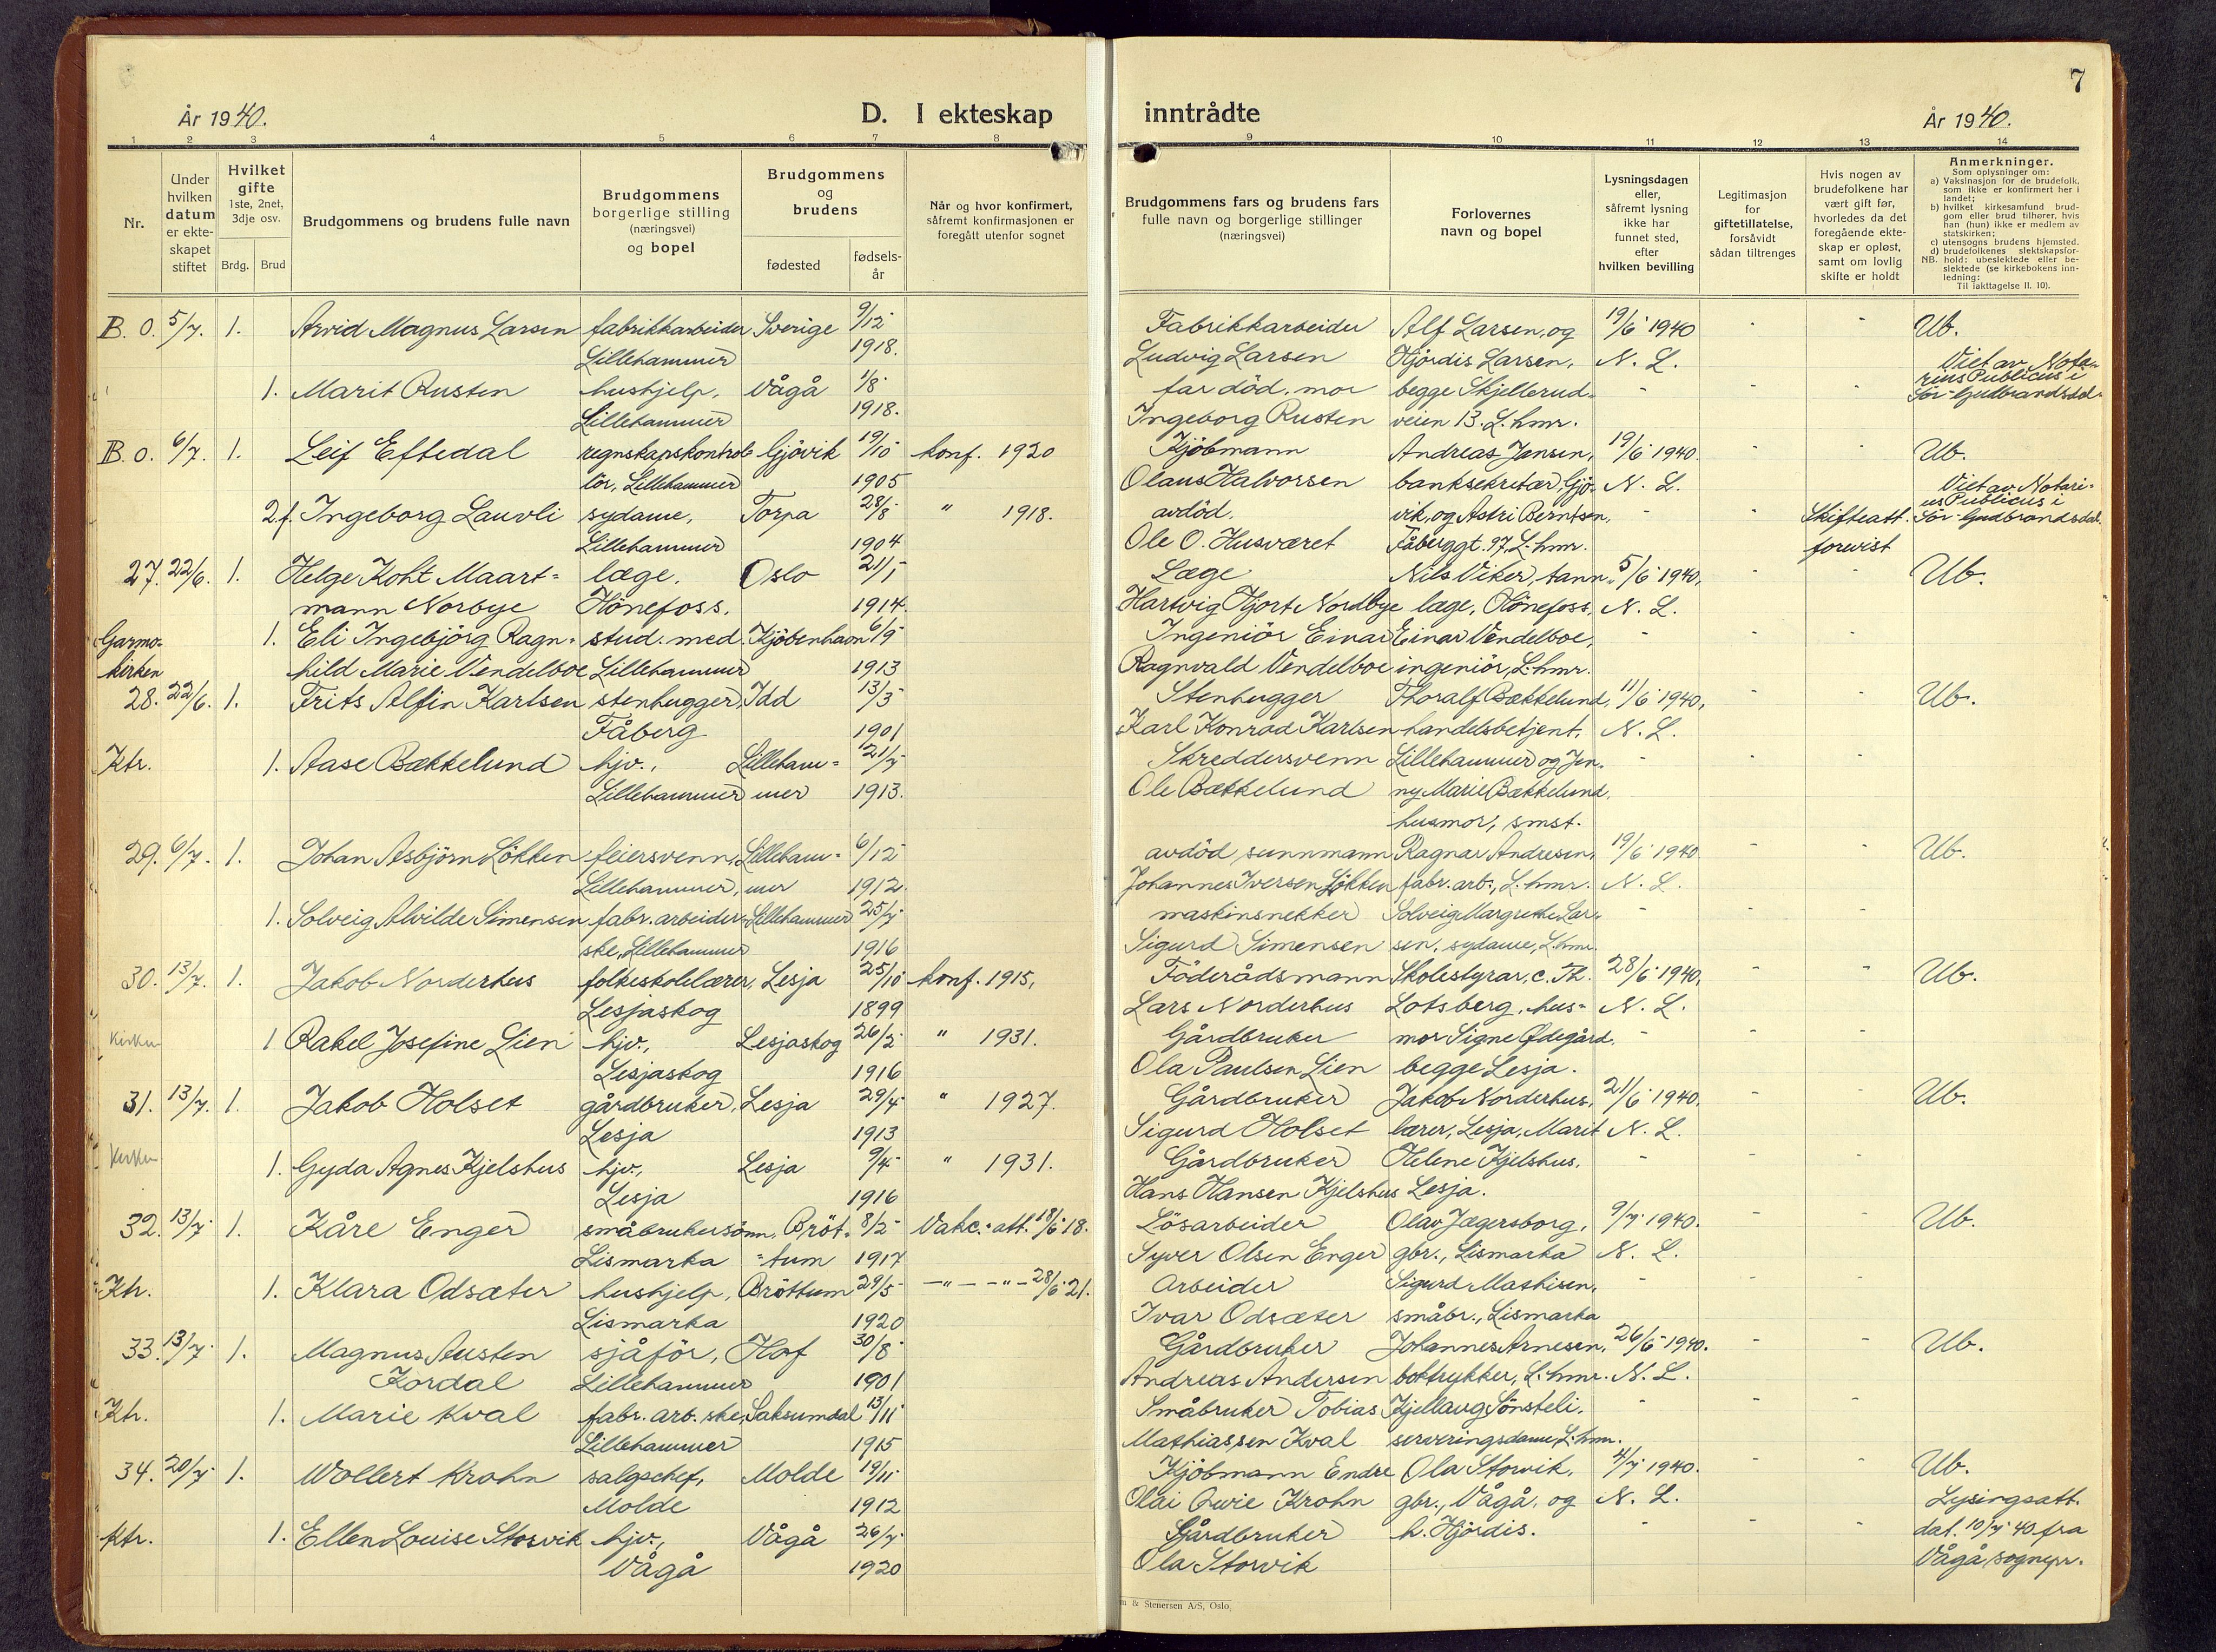 7
År 1940.
D. I ekteskap inntrådte
År 1940.
1 2 3 4 5 6 7 8 9 10 11 12 13 14
Nr.
Under hvilken datum er ekte- skapet stiftet
Hvilket gifte 1ste, 2net, 3dje osv.
Brdg. Brud
Brudgommens og brudens fulle navn
Brudgommens borgerlige stilling (næringsvei) og bopel
Brudgommens og brudens
fødested
fødsels- år
Når og hvor konfirmert, såfremt konfirmasjonen er foregått utenfor sognet
Brudgommens fars og brudens fars fulle navn og borgerlige stillinger (næringsvei)
Forlovernes navn og bopel
Lysningsdagen eller, såfremt lysning ikke har funnet sted, efter hvilken bevilling
Legitimasjon for giftetillatelse, forsåvidt sådan tiltrenges
Hvis nogen av brudefolkene har vært gift før, hvorledes da det foregående ekte- skap er opløst, samt om lovlig skifte er holdt
Anmerkninger.
Som oplysninger om:
a) Vaksinasjon for de brudefolk, som ikke er konfirmert her i landet;
b) hvilket kirkesamfund brud- gom eller brud tilhører, hvis han (hun) ikke er medlem av statskirken;
c) utensogns brudens hjemsted.
d) brudefolkenes slektskapsfor- hold: ubeslektede eller be- slektede (se kirkebokens inn- ledning:
NB.
Til iakttagelse II. 10).
B. O. 5/7. 1. Arvid Magnus Larsen fabrikkarbeider Sverige 9/12 Fabrikkarbeider Alf Larsen, og 19/6 1940 - - Ub.
Lillehammer 1918. Ludvig Larsen Hjördis Larsen, N. L. Viet av Nota-
1. Marit Rusten hushjelp, Vågå 1/8 far död, mor begge Skjellerud- - - - rius Publicus i
Lillehammer 1918. Ingeborg Rusten veien 13. L.hmr. Sör-Gudbrandsdal
B. o. 6/7. 1. Leif Eftedal regnskapskontrol- Gjövik 19/10 konf. 1920 Kjöbmann Andreas Jensen, 19/6 1940. - - Ub.
lör, Lillehammer 1905 Olaus Halvorsen banksekretær, Gjö- N. L. Viet av Notari-
2.f. Ingeborg Lauvli sydame, Torpa 28/8 " 1918. avdöd. vik, og Astri Berntsen, - Skifteatt. us Publicus i Sör-Gudbrandsdal.
Lillehammer 1904 Ole O. Husværet Fåberggt. 97, L.hmr. forevist
27. 22/6. 1. Helge Koht Maart= læge. Oslo 21/1 Læge Nils Viker, tann- 5/6 1940, - - Ub.
mann Norbye Hönefoss. 1914. Hartvig Hjort Nordbye læge, Hönefoss. N. L.
Garmo- 1. Eli Ingebjörg Ragn- stud. med. Kjöbenhavn 6/9 Ingeniör Einar Einar Vendelboe, - - -
kirken hild Marie Vendelboe Lillehammer 1913 Ragnvald Vendelboe ingeniör, L.hmr.
28. 22/6. 1. Frits Alfin Karlsen stenhugger, Idd 13/3 Stenhugger Thoralf Bækkelund, 11/6 1940, - - Ub.
Fåberg 1901 Karl Konrad Karlsen handelsbetjent, N. L.
Ktr. 1. Aase Bækkelund hjv., Lilleham= 21/7 Skreddersvenn Lillehammer og Jen- - - -
Lillehammer mer 1913. Ole Bækkelund ny Marie Bækkelund,
husmor, smst.
29. 6/7. 1. Johan Asbjörn Lökken feiersvenn, Lilleham= 6/12 avdöd sunnmann Ragnar Andresen, 19/6 1940 - - Ub.
Lillehammer, mer 1912 Johannes Iversen Lökken fabr. arb., L.hmr. N. L.
1. Solveig Alvilde Simensen fabr. arbeider- Lillehammer 25/7 maskinsnekker Solveig Margrethe Lar- - - -
ske, Lillehammer 1916 Sigurd Simensen sen, sydame, L.hmr.
30. 13/7. 1. Jakob Norderhus folkeskolelærer, Lesja 25/10 konf. 1915, Föderådsmann Skolestyrar, C. Th. 28/6 1940, - - Ub.
Lesjaskog 1899 Lars Norderhus Lotsberg, hus- N. L.
Kirken 1 Rakel Josefine Lien hjv., Lesjaskog 26/2 " 1931. Gårdbruker mor Signe Ødegård, - - -
Lesjaskog 1916 Ola Paulsen Lien begge Lesja.
31. 13/7. 1. Jakob Holset gårdbruker, Lesja 29/4 " 1927. Gårdbruker Jakob Norderhus, 21/6 1940, - - Ub.
Lesja 1913 Sigurd Holset lærer, Lesja, Marit N. L.
Kirken 1. Gyda Agnes Kjelshus hjv., Lesja 9/4 " 1931. Gårdbruker Helene Kjelshus, - - -
Lesja 1916 Hans Hansen Kjelshus Lesja.
32. 13/7 1. Kåre Enger småbrukersönn, Bröt- 8/2 Vakc.-att. 18/6 18. Lösarbeider Olav Jægersborg, 9/7 1940. - - Ub.
Lismarka =tum 1917 Syver Olsen Enger gbr., Lismarka N. L.
Ktr. 1. Klara Odsæter hushjelp, Bröttum 29/5 —"— —"— 28/6 21. Arbeider Sigurd Mathisen, - - -
Lismarka 1920 Ivar Odsæter småbr., Lismarka
33. 13/7 1. Magnus Austen sjåför, Hof 30/8 Gårdbruker Johannes Arnesen, 26/6 1940. - - Ub.
Kordal Lillehammer 1901 Andreas Andersen boktrykker, L.hmr. N. L.
Ktr. 1. Marie Kval fabr. arb. ske, Saksumdal 13/11 Småbruker Tobias Kjellaug Sönsteli, - - -
Lillehammer 1915 Mathiassen Kval serveringsdame, L.hmr.
34. 20/7 1. Wollert Krohn salgschef, Molde 19/11 Kjöbmann Endre Ola Storvik, 4/7 1940. - - Ub.
Molde 1912 Olai Owie Krohn gbr., Vågå, og N. L. Lysingsatt.
Ktr. 1. Ellen Louise Storvik hjv., Vågå 26/7 Gårdbruker h. Hjördis. - - - dat. 10/7 40 fra
Vågå 1920 Ola Storvik Vågå sognepr.
& Stenersen A/S, Oslo.